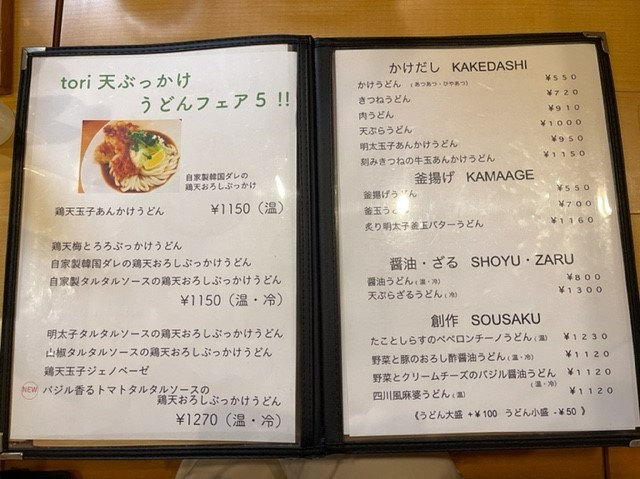 tori 天ぶっかけ
うどんフェア5 !!
自家製韓国ダレの
鶏天おろしぶっかけ
鶏天玉子あんかけうどん ¥1150(温)
鶏天梅とろろぶっかけうどん
自家製韓国ダレの鶏天おろしぶっかけうどん
自家製タルタルソースの鶏天おろしぶっかけうどん
¥1150(温・冷)
明太子タルタルソースの鶏天おろしぶっかけうどん
山椒タルタルソースの鶏天おろしぶっかけうどん
鶏天玉子ジェノベーゼ
NEW バジル香るトマトタルタルソースの
鶏天おろしぶっかけうどん
¥1270(温・冷)
かけだし KAKEDASHI
かけうどん (あつあつ・ひやあつ) ¥550
きつねうどん ¥720
肉うどん ¥910
天ぷらうどん ¥1000
明太玉子あんかけうどん ¥950
刻みきつねの牛玉あんかけうどん ¥1150
釜揚げ KAMAAGE
釜揚げうどん ¥550
釜玉うどん ¥700
炙り明太子釜玉バターうどん ¥1160
醤油・ざる SHOYU・ZARU
醤油うどん(温・冷) ¥800
天ぷらざるうどん(冷) ¥1300
創作 SOUSAKU
たことしらすのペペロンチーノうどん(温) ¥1230
野菜と豚のおろし酢醤油うどん(温・冷) ¥1120
野菜とクリームチーズのバジル醤油うどん ¥1120
(温・冷)
四川風麻婆うどん(温) ¥1120
《うどん大盛 +¥100 うどん小盛 -¥50 》